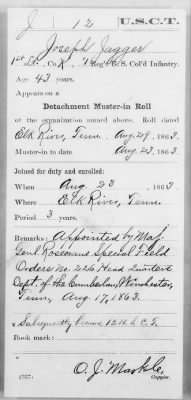 J 12 U.S.C.T.
Joseph Jagger
1st Lt., Co. K, Reg't U.S. Col'd Infantry.
Age 43 years.
Appears on a
Detachment Muster-in Roll
of the organization named above. Roll dated
Elk River, Tenn. Aug. 29, 1863.
Muster-in to date Aug. 23, 1863.
Joined for duty and enrolled:
When Aug 23, 1863.
Where Elk River, Tenn.
Period 3 years.
Remarks: Appointed by Maj.
Genl. Rosecrans Special Field
Orders No. 226 Head Quarters
Dept. of the Cumberland, Winchester,
Tenn, Aug. 17, 1863.
Subsequently became 12 U.S.C.T.
Book mark:
O. J. Markle.
Copyist.